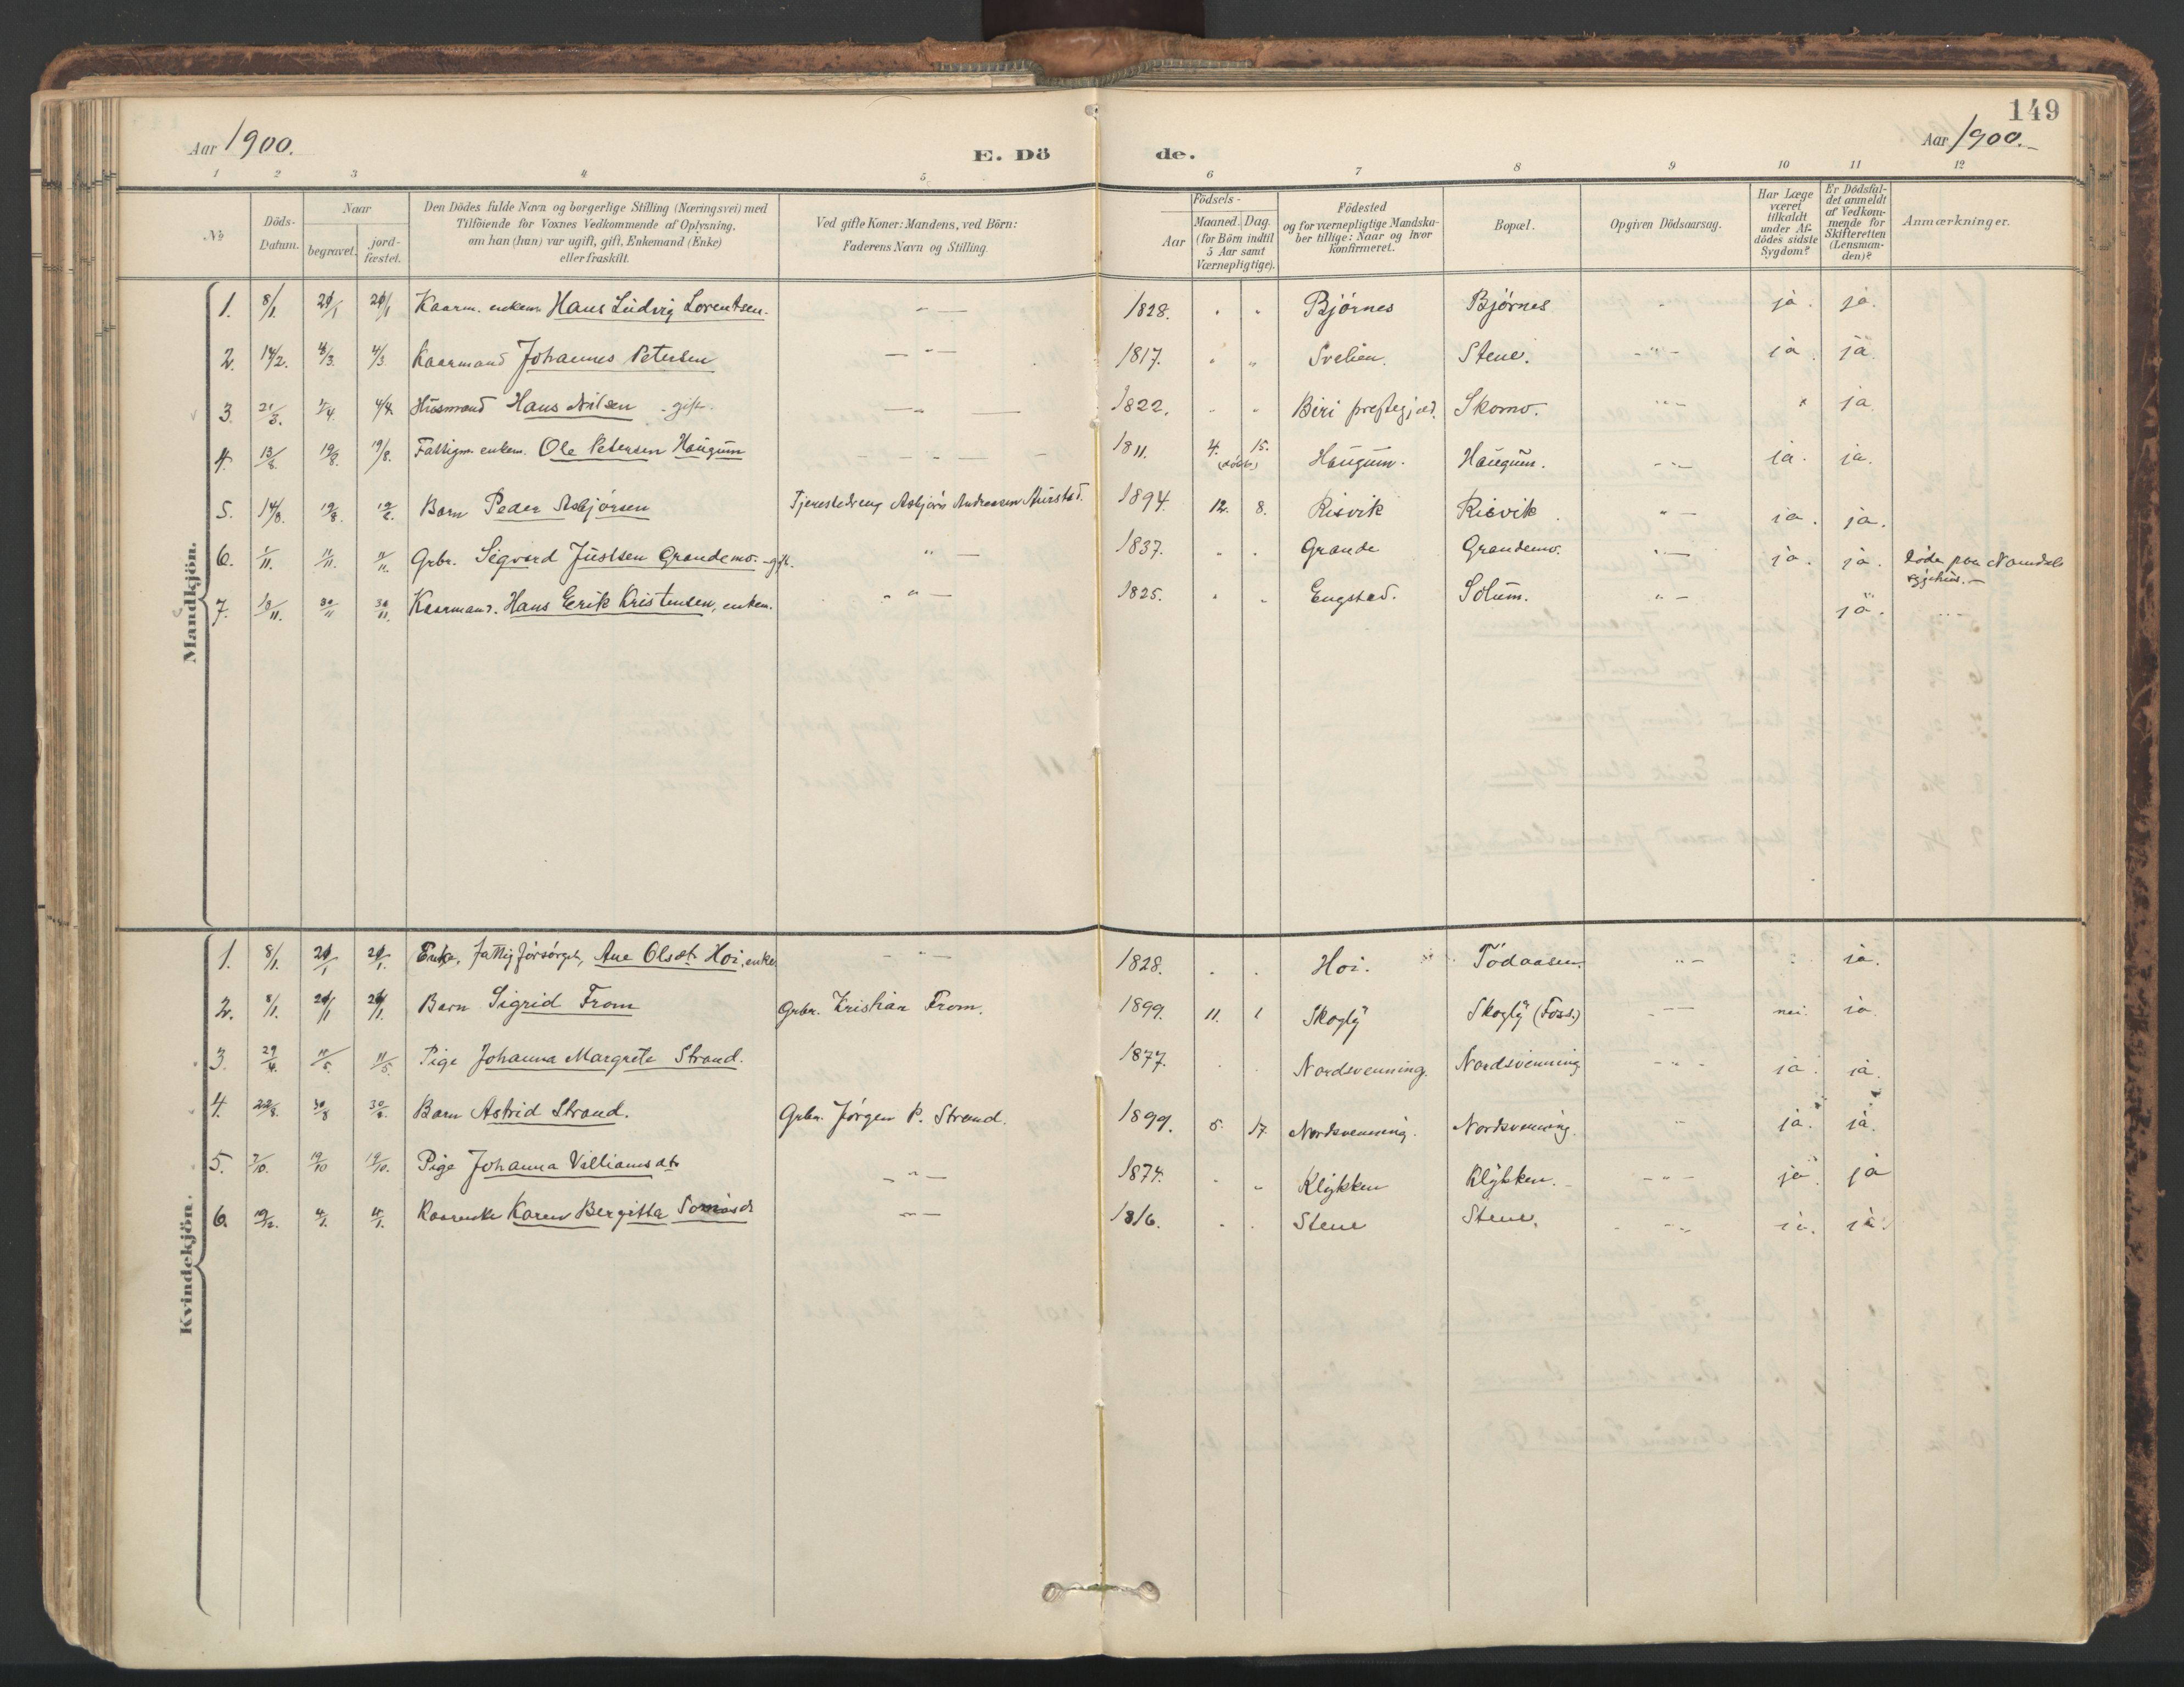 149
Aar 1900. E. Dö de. Aar 1900.
1 2 3 4 5 6 7 8 9 10 11 12
No
Döds-Datum.
Naar
begravet. jord-fæstet.
Den Dödes fulde Navn og borgerlige Stilling (Næringsvei) med
Tilföiende for Voxnes Vedkommende af Oplysning,
om han (hun) var ugift, gift, Enkemand (Enke)
eller fraskilt.
Ved gifte Koner: Mandens, ved Börn:
Faderens Navn og Stilling.
Födsels-
Aar Maaned. Dag.
(for Börn indtil
5 Aar samt
Værnepligtige).
Födested
og for værnepligtige Mandska-
ber tillige: Naar og hvor
konfirmeret.
Bopæl.
Opgiven Dödsaarsag.
Har Læge
været
tilkaldt
under Af-
dödes sidste
Sygdom?
Er Dödsfal-
det anmeldt
af Vedkom-
mende for
Skifteretten
(Lensman-
den)?
Anmærkninger.
Mandkjön.
1. 8/1. Kaarm. enkem. Hans Ludvig Lorentsen. 1828. Bjørnes Bjørnes ja. ja.
2. 14/2. 4/3. 4/3 Kaarmand Johannes Petersen 1817. Svelien. Stene. ja ja.
3. 21/3. 4/4. Husmand Hans Nilsen gift. 1822. Biri prestegjæld. Skomo. ja
4. 13/8. 19/8. 19/8. Fattigm. enkem. Ole Petersen Haugum 1811. 4. 15. (døbt) Haugum. Haugum. ja. ja.
5. 14/8. 19/8. 19/8. Barn Peder Asbjørsen Tjenestedreng Asbjørn Andreassen Aurstad. 1894. 12. 8. Risvik Risvik. ja. ja.
6. 11/11. 11/11. Grbr. Sigvard Justsen Grandemo. gift. 1837. Grande Grandemo. ja. ja. Døde paa Namdals
sygehus.
7. 30/11 30/11. Kaarmand. Hans Erik Kristensen, enkem. 1825. Engstad. Solum. ja.
Kvindekjön.
1. 8/1. Enke, fattigforsørget, Ane Olsdt. Hoi, enke. 1828. Hoi. Tødaasen. ja.
2. 8/1. Barn Sigrid From Grbr. Kristian From. 1899. 11. 1 Skogly Skogly (Foss.) nei. ja
3. 29/4. 11/5. 11/5. Pige Johanna Margrete Strand. 1877. Nordsvenning. Nordsvenning ja. ja.
4. 22/8. 30/8 30/8. Barn Astrid Strand. Grbr. Jørgen P. Strand. 1899. 5. 17. Nordsvenning. Nordsvenning. ja. ja.
5. 7/10. 19/10 19/10. Pige Johanna Villiamsdt. 1874. Klykken Klykken. ja. ja
6. 19/12. 4/1. 4/1. Kaarenke Karen Bergitta 1816. Stene Stene. ja. ja.